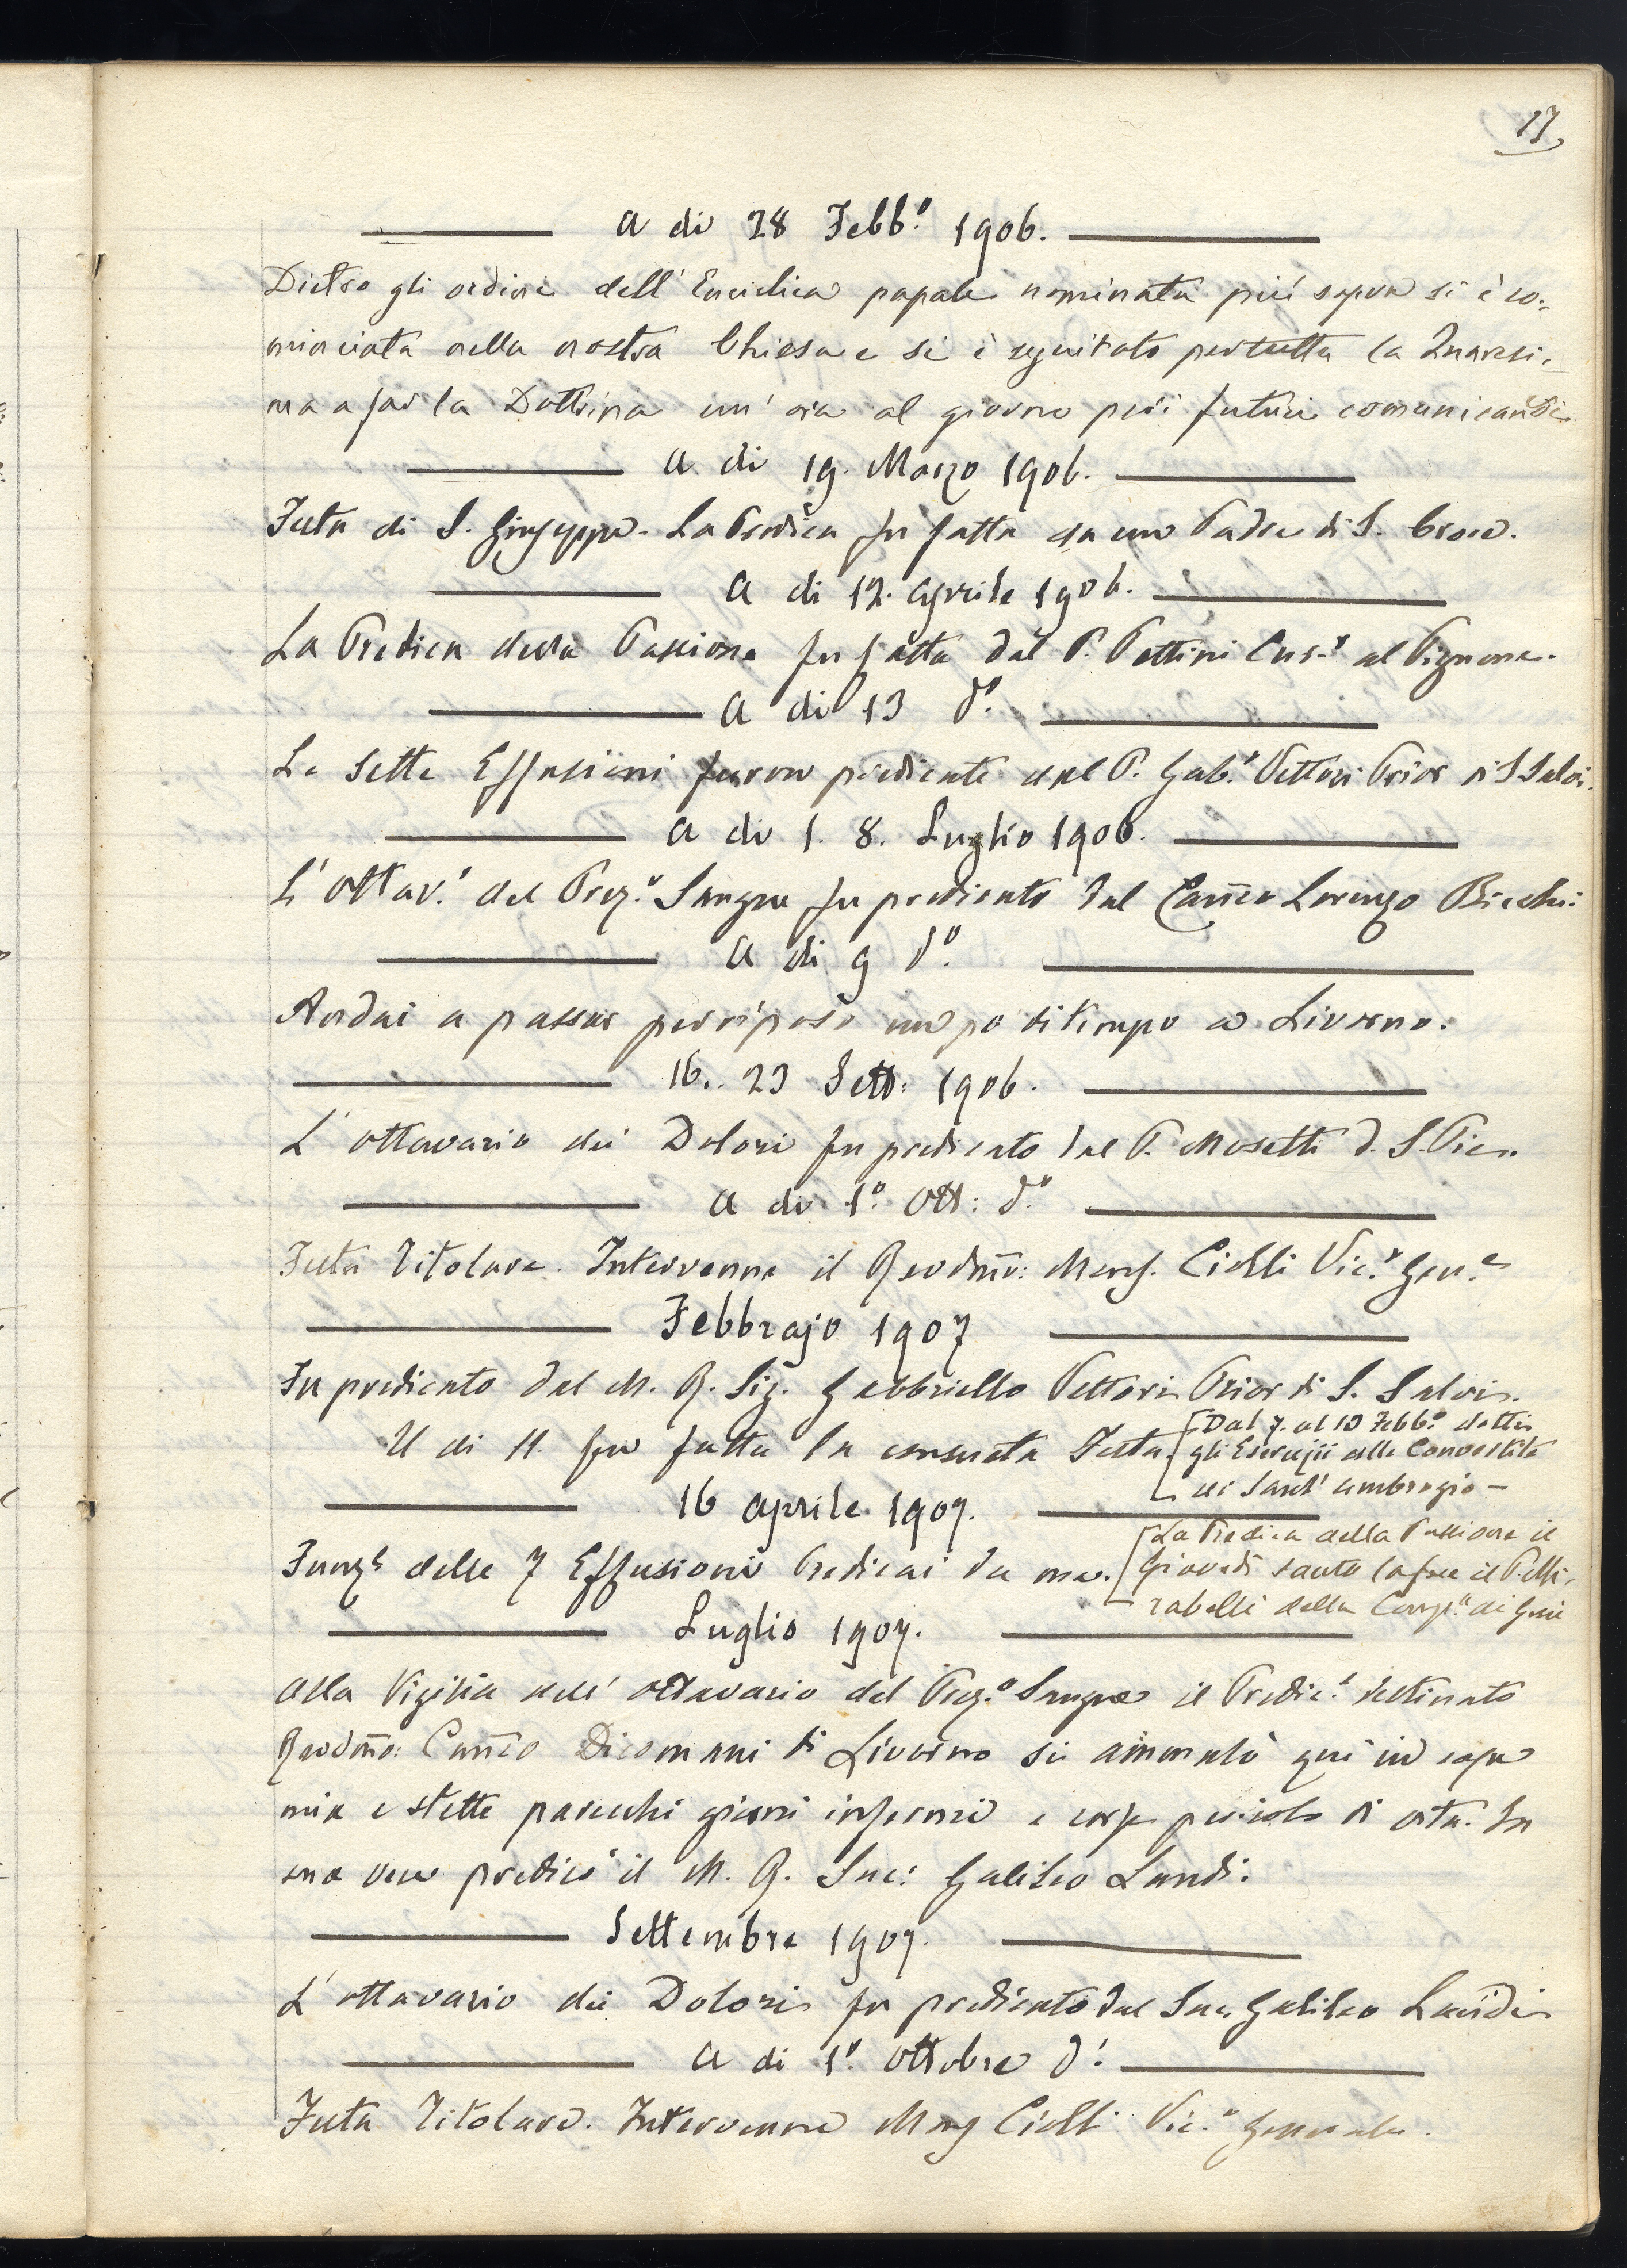 17
A di 28 Febb.º 1906.
Dietro gli ordini dell' Enciclica papale nominata più sopra si è co=
minciata nella nostra Chiesa e si è seguitato per tutta la Quaresi=
ma a far la Dottrina un' ora al giorno pei futuri comunicandi.
A di 19. Marzo 1906.
Festa di S. Giuseppe. La Predica fu fatta da un Padre di S. Croce.
A di 12. Aprile 1906.
La Predica della Passione fu fatta dal P. Pettini Cur.º al Pignone.
A di 13 d.º
Le Sette Effusioni furon predicate dal P. Gab.º Vettori Prior di S Salvi.
A di 1. 8. Luglio 1906.
L' Ottav.º del Prez.º Sangue fu predicato dal Can̄co Lorenzo Bicchi:
A di 9 d.º
Andai a passar per riposo un po di tempo a Livorno.
16.. 23 Sett: 1906.
L' ottavario dei Dolori fu predicato dal P. Mosetti d. S. Pie..
A di 1.º Ott: d.º
Festa Titolare. Intervenne il Revdm̄o: Mons. Ciolli Vic.º Gen.e
Febbrajo 1907
Fu predicato dal M. R. Sig. Gabbriello Vettori Prior di S. Salvi.
Il di 11. fu fatta la consueta Festa.
[Dal 7. al 10 Febb.º dettai
gli Esercizii alle Convertite
di Sant' Ambrogio –
16 Aprile 1907.
Funz.e delle 7 Effusioni Predicai da me.
[La Predica della Passione il
Giovedì santo la fece il P. Mi=
rabelli della Comp.a di Gesù
Luglio 1907.
Alla Vigilia dell' ottavario del Prez.º Sangue il Predic.e destinato
Revdm̄o: Can̄co Dicomani di Livorno si ammalò qui in casa
mia e stette parecchi giorni infermo e corse pericolo di vita. In
sua vece predicò il M. R. Sac: Galileo Landi.
Settembre 1907.
L' ottavario dei Dolori fu predicato dal Sac. Galileo Landi
A di 1.º Ottobre d.º
Festa Titolare. Intervenne Mons Ciolli Vic.º Generale.